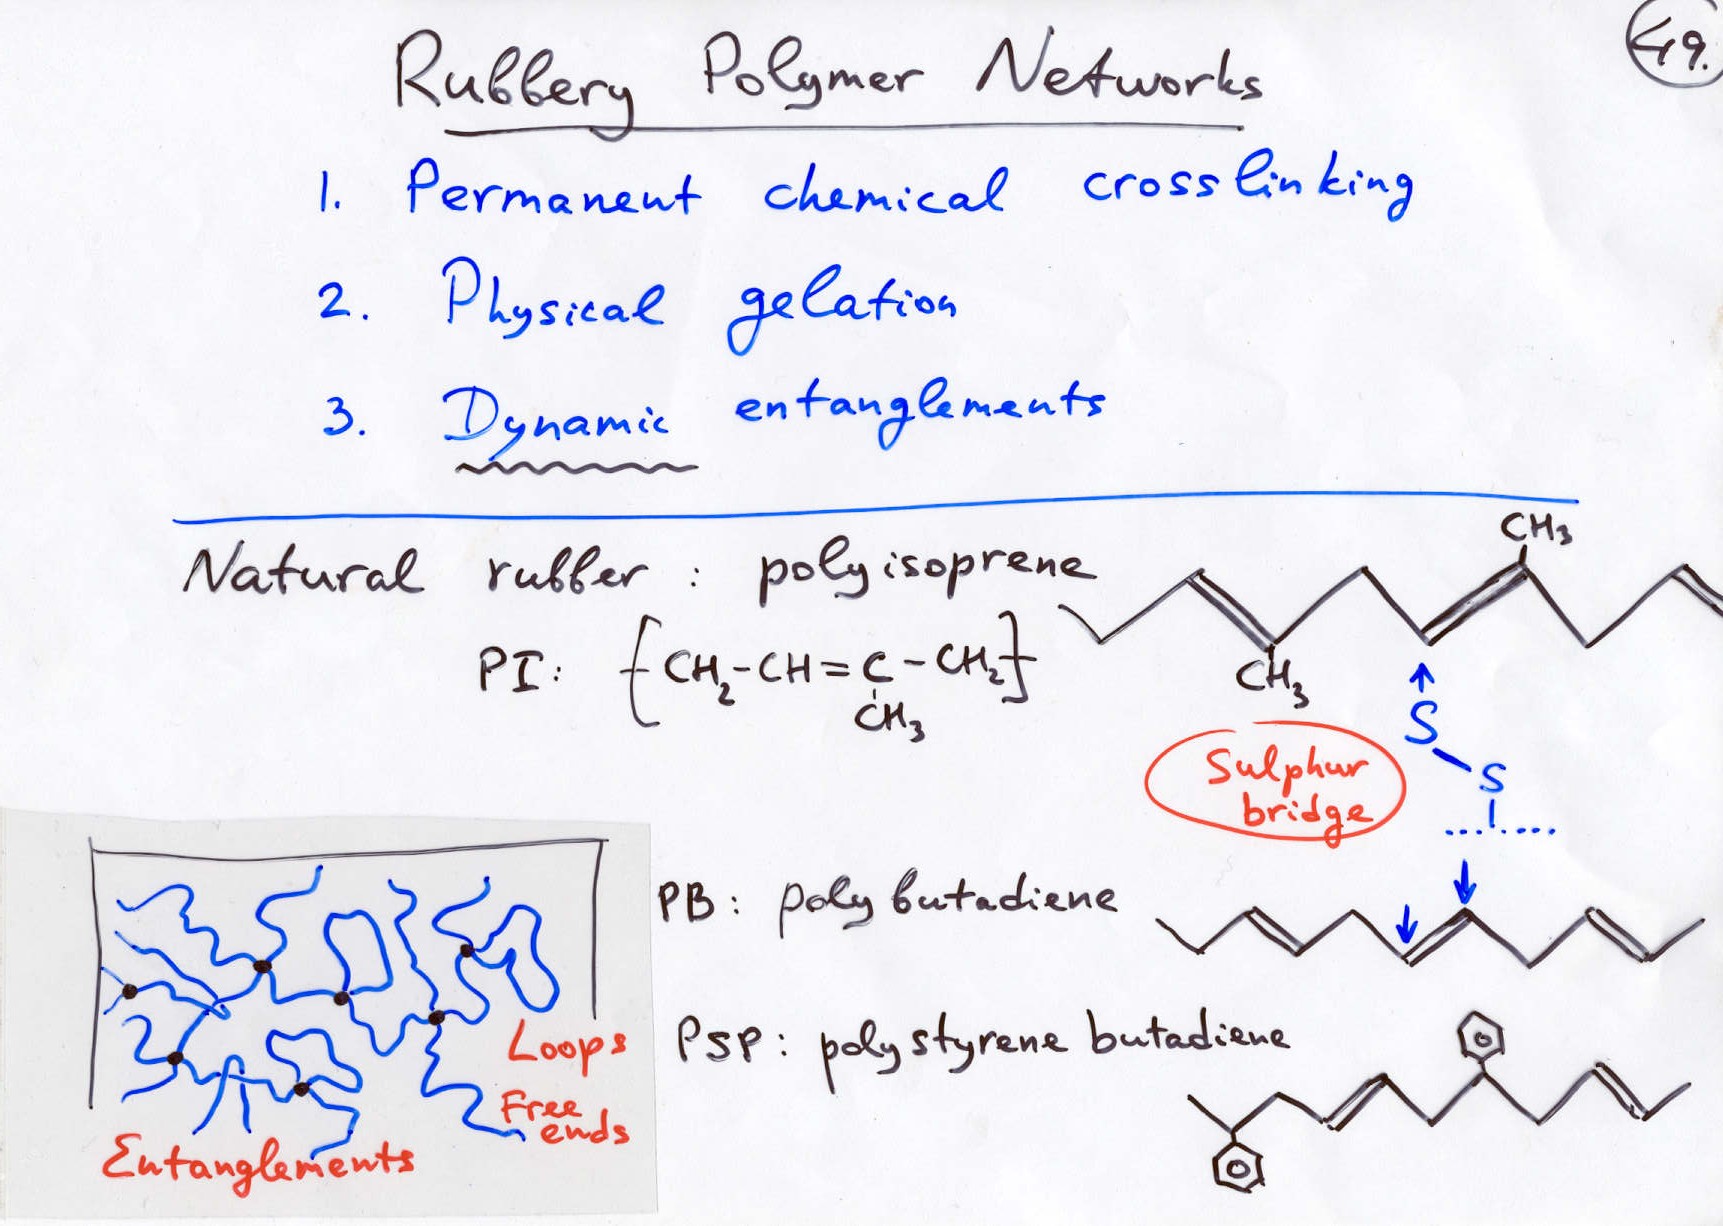 Rubbery Polymer Networks
49.
1. Permanent chemical crosslinking
2. Physical gelation
3. Dynamic entanglements
Natural rubber : polyisoprene
PI: [CH₂-CH=C-CH₂]
CH₃
CH₃
CH₃
S
S
Sulphur
bridge
PB: polybutadiene
PSP: polystyrene butadiene
Loops
Free
ends
Entanglements